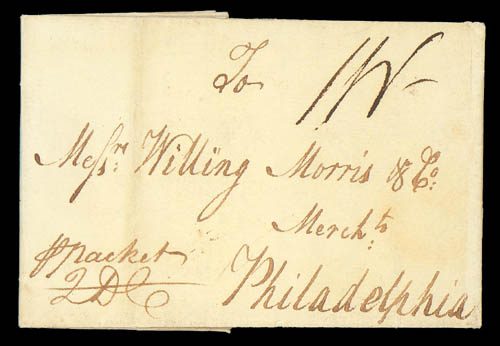 To
Messrs: Willing Morris & Co:
Merchts:
Philadelphia
packet